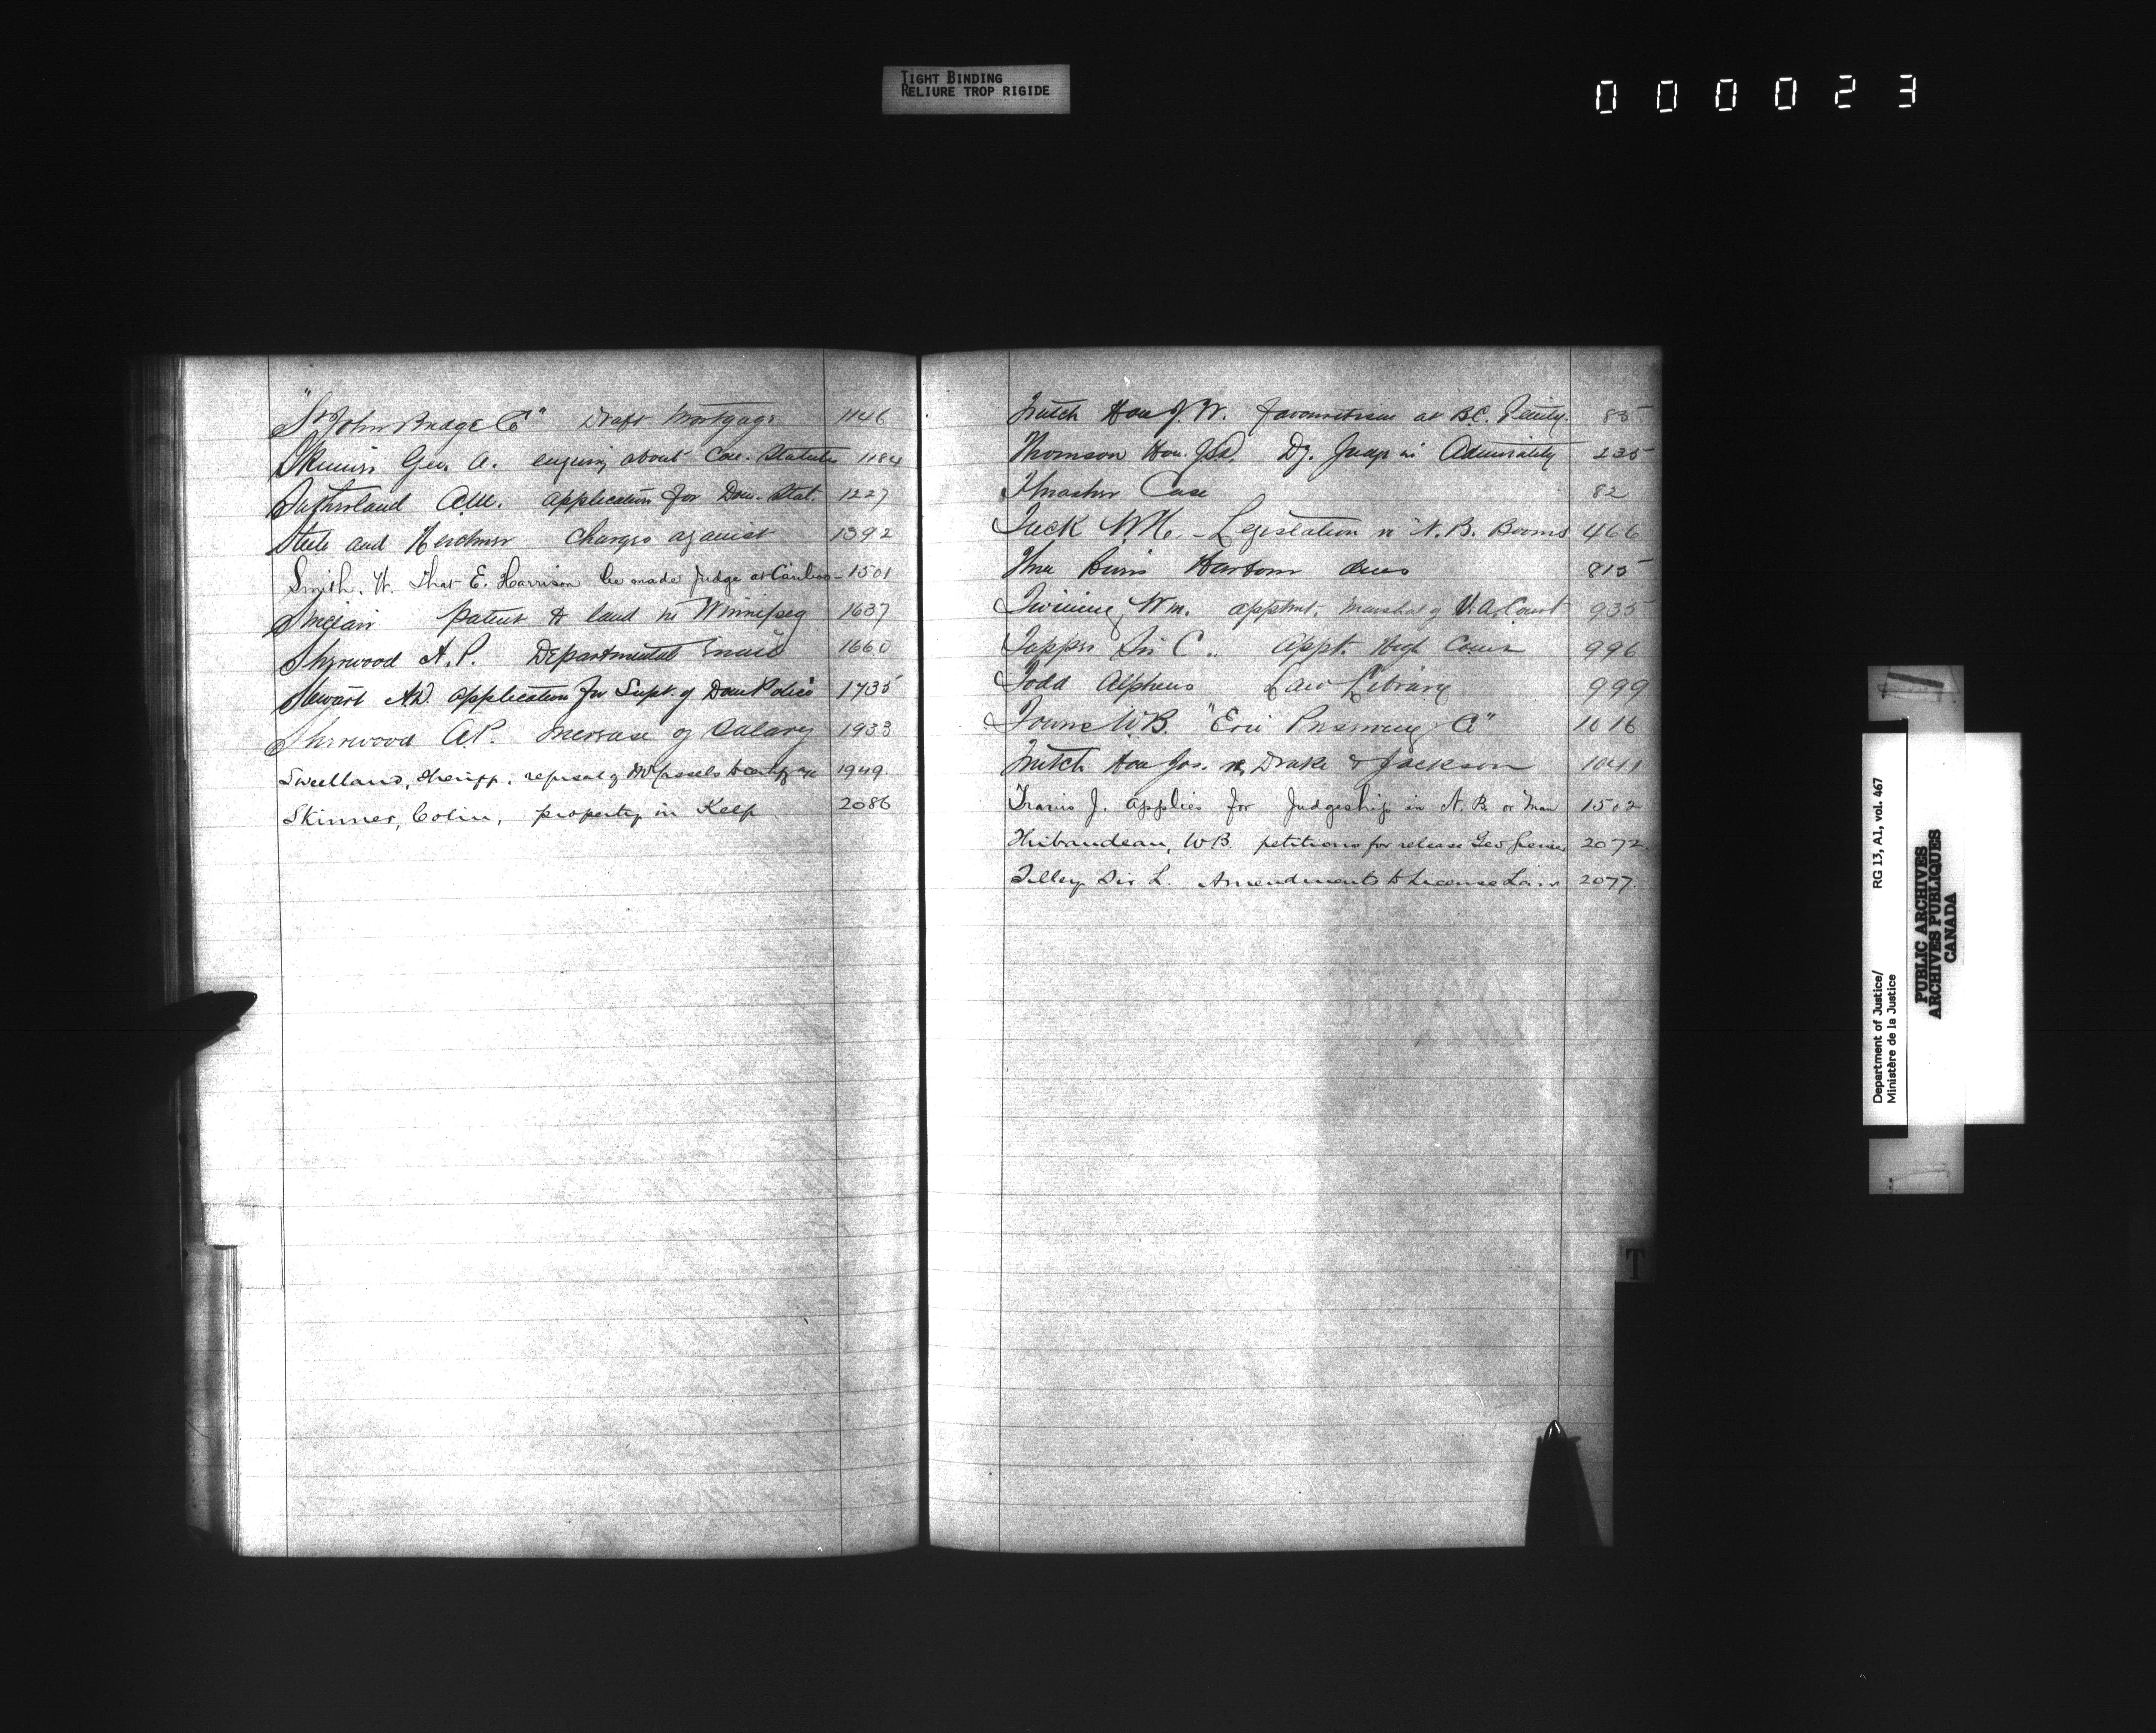 TIGHT BINDING
RELIURE TROP RIGIDE
000023
"St John Bridge Co" Draft Mortgage 1146
Skinner Geo. A. enquiry about Con. Statutes 1184
Sutherland A.M. application for Dom. Stat. 1227
Steele and Herchmer Charges against 1392
Smith. W. That E. Harrison be made Judge at Cariboo - 1501
Sinclair patent to land in Winnipeg 1637
Sherwood A.P. Departmental 1660
Stewart A.W. application for Supt. of Dom Police 1735
Sherwood A.P. increase of Salary 1933
Sweetland, Sheriff, refusal of to certify 1949
Skinner, Colin, property in Kelp 2086
Trutch Hon J.W. favouretism at B.C. Penity. 85
Thomson Hon. Dy. Judge in Admiralty 235
Thrasher Case 82
Tuck W.H. - Legislation re N.B. Booms 466
Three Rivers Harbour dues 815
Twining, Wm. apptmt. Marshal of V.A. Court 935
Tupper Sir C.. appt. High Comr 996
Todd Alpheus Law Library 999
Towne W.B. "Erie Co" 1016
Trutch Hon Jos. re Drake & Jackson 1041
Travis J. applies for Judgeship in N.B. or Man 1502
Thibaudeau, W.B. petitions for release Geo 2072
Tilley Sir L. Amendments to License Law 2077
T
Department of Justice/
Ministère de la Justice
RG 13, A1, vol. 467
PUBLIC ARCHIVES
ARCHIVES PUBLIQUES
CANADA